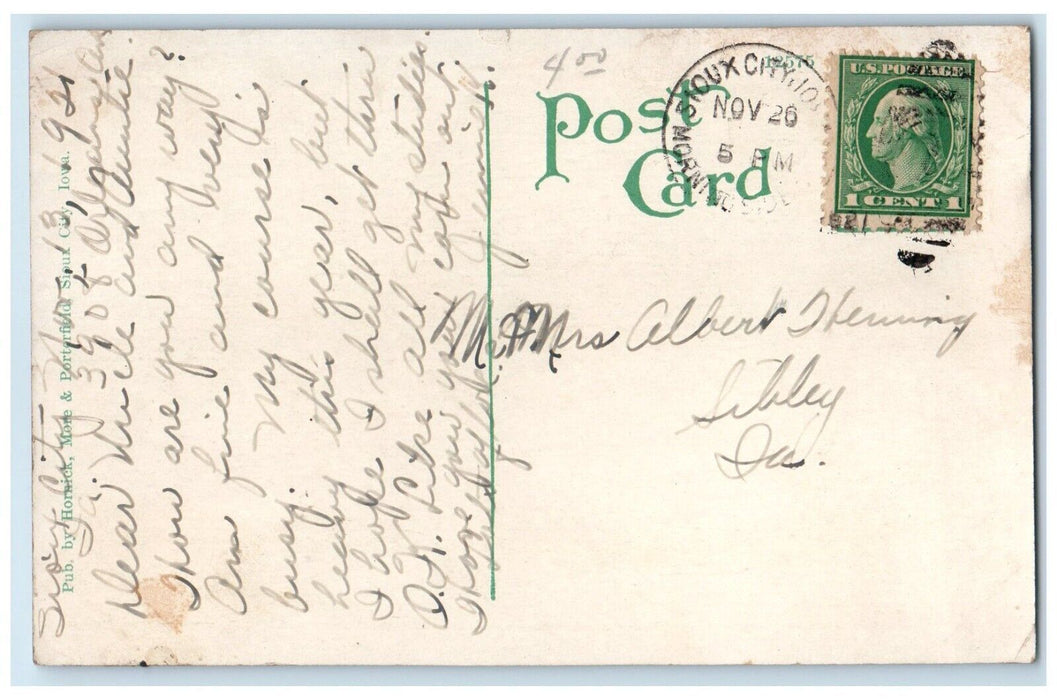 Sioux City, Nov. 13, 1921
Ia. 3901 Orleans Av
Dear Uncle and Auntie
How are you any way?
Am fine and very
busy. My course is
heavy this year, but
I hope I shall get thru
O.K. Like all my studies.
Hope you get
4.00
12576
Post Card
SIOUX CITY, IO
NOV 26
5 PM
MORNINGSIDE
U.S. POSTAGE
1 CENT 1
Mr. & Mrs Albert Thenning
Sibley
Ia.
Pub. by Hornick, More & Porterfield, Sioux City, Iowa.